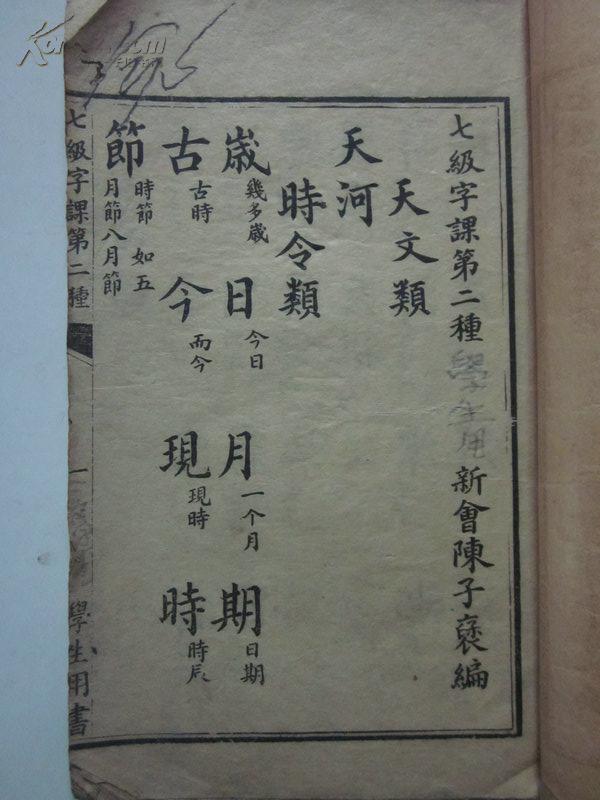 七級字課第二種 學生用 新會陳子褒編
天文類
天河
時令類
歲 幾多歲 日 今日 月 一个月 期 日期
古 古時 今 而今 現 現時 時 時辰
節 時節 如五月節八月節
七級字課第二種 一 學生用書